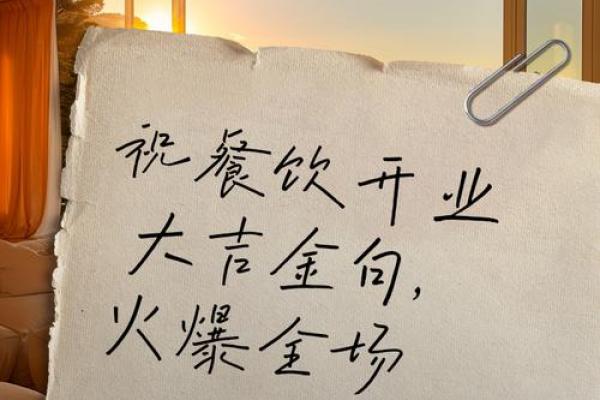 祝餐饮开业
大吉金句,
火爆全场